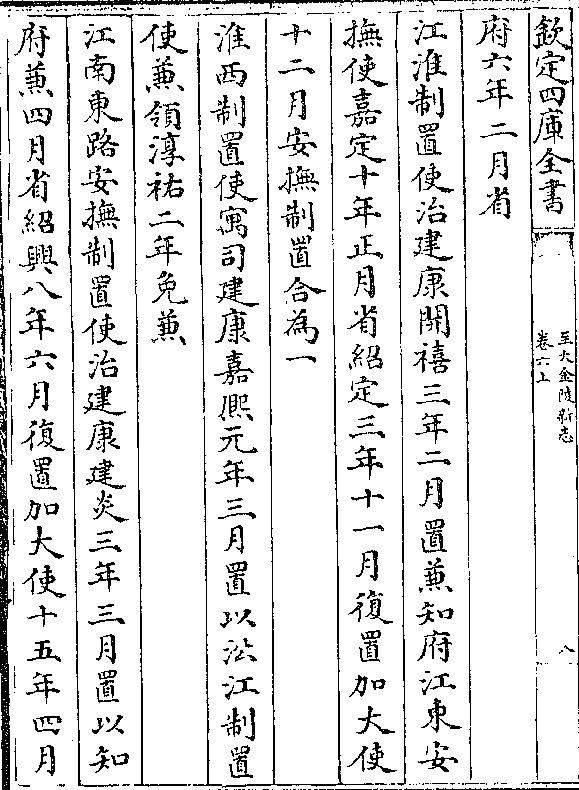 欽定四庫全書
至大金陵新志
卷六上
八
府六年二月省
江淮制置使治建康開禧三年二月置兼知府江東安
撫使嘉定十年正月省紹定三年十一月復置加大使
十二月安撫制置合為一
淮西制置使寓司建康嘉熙元年三月置以沿江制置
使兼領淳祐二年免兼
江南東路安撫制置使治建康建炎三年三月置以知
府兼四月省紹興八年六月復置加大使十五年四月